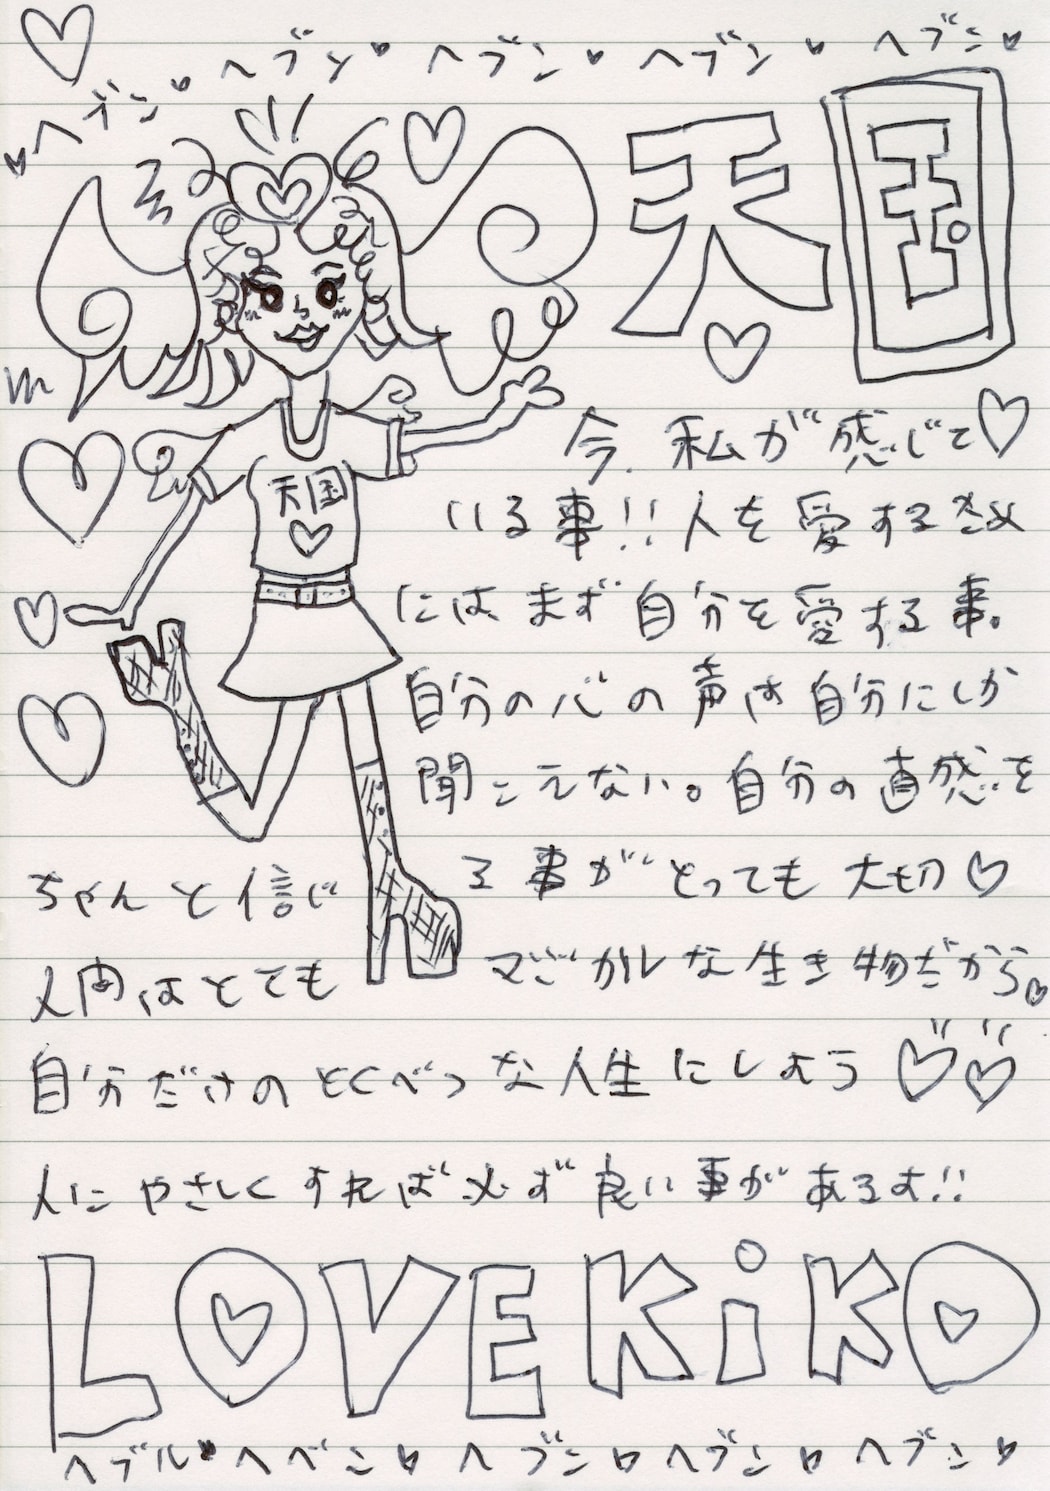 ♥ヘブン♥ヘブン♥ヘブン♥ヘブン♥ヘブン♥
天国
天国
今、私が感じて
いる事!!人を愛するため
にはまず自分を愛する事。
自分の心の声は自分にしか
聞こえない。自分の直感を
ちゃんと信じる事がとっても大切♡
人間はとてもマジカルな生き物だから♡
自分だけのとくべつな人生にしよう♡♡
人にやさしくすれば必ず良い事があるよ!!
LOVE KiKO
ヘブル♥ヘベン♥ヘブン♥ヘブン♥ヘブン♥